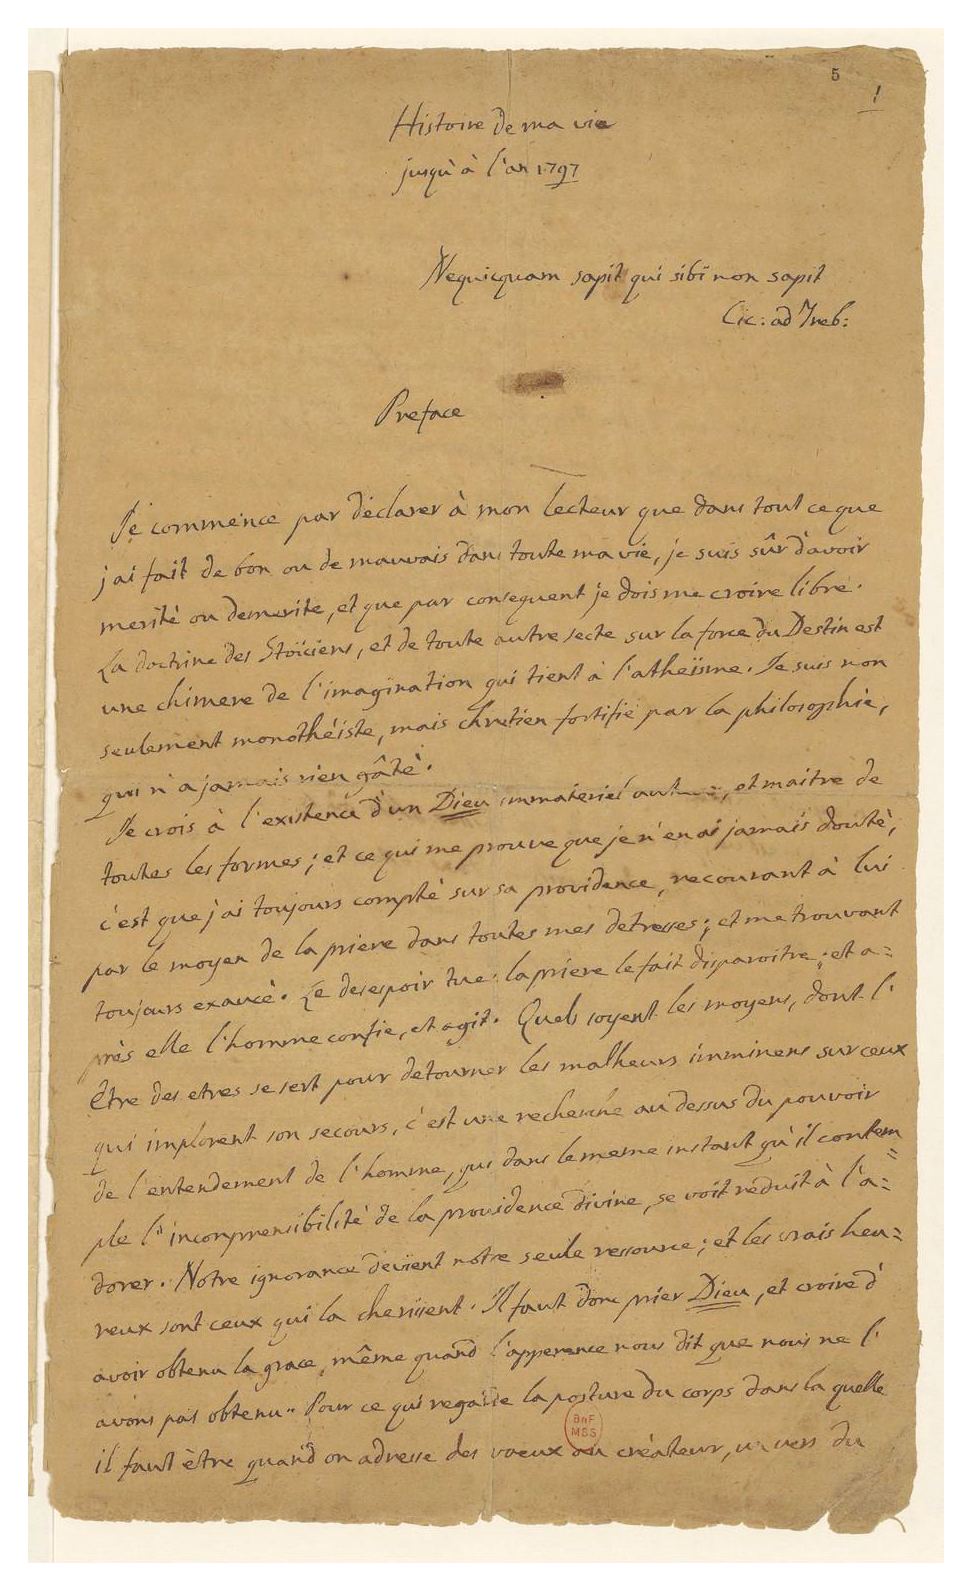 5
1
Histoire de ma vie
jusqu'à l'an 1797
Nequicquam sapit qui sibi non sapit
Cic: ad Treb:
Preface
Je commence par déclarer à mon lecteur que dans tout ce que
j'ai fait de bon ou de mauvais dans toute ma vie, je suis sûr d'avoir
merité ou demerité, et que par consequent je dois me croire libre.
La doctrine des Stoïciens, et de toute autre secte sur la force du Destin est
une chimere de l'imagination qui tient à l'atheïsme. Je suis non
seulement monothéiste, mais chretien fortifié par la philosophie,
qui n'a jamais rien gâté.
Je crois à l'existence d'un Dieu immateriel auteur, et maitre de
toutes les formes; et ce qui me prouve que je n'en ai jamais douté,
c'est que j'ai toujours compté sur sa providence, recourant à lui
par le moyen de la priere dans toutes mes detresses; et me trouvant
toujours exaucé. Le desespoir tue: la priere le fait disparoitre; et a=
près elle l'homme confie, et agit. Quels soyent les moyens, dont l'
Être des etres se sert pour detourner les malheurs imminens sur ceux
qui implorent son secours, c'est une recherche au dessus du pouvoir
de l'entendement de l'homme, qui dans le meme instant qu'il contem=
ple l'incomprensibilité de la providence divine, se voit réduit à l'a=
dorer. Notre ignorance devient notre seule ressource; et les vrais heu=
reux sont ceux qui la cherissent. Il faut donc prier Dieu, et croire d'
avoir obtenu la grace, même quand l'apparence nous dit que nous ne l'
avons pas obtenu. Pour ce qui regarde la posture du corps dans la quelle
il faut être quand on adresse des voeux au créateur, un vers du
BnF
MSS